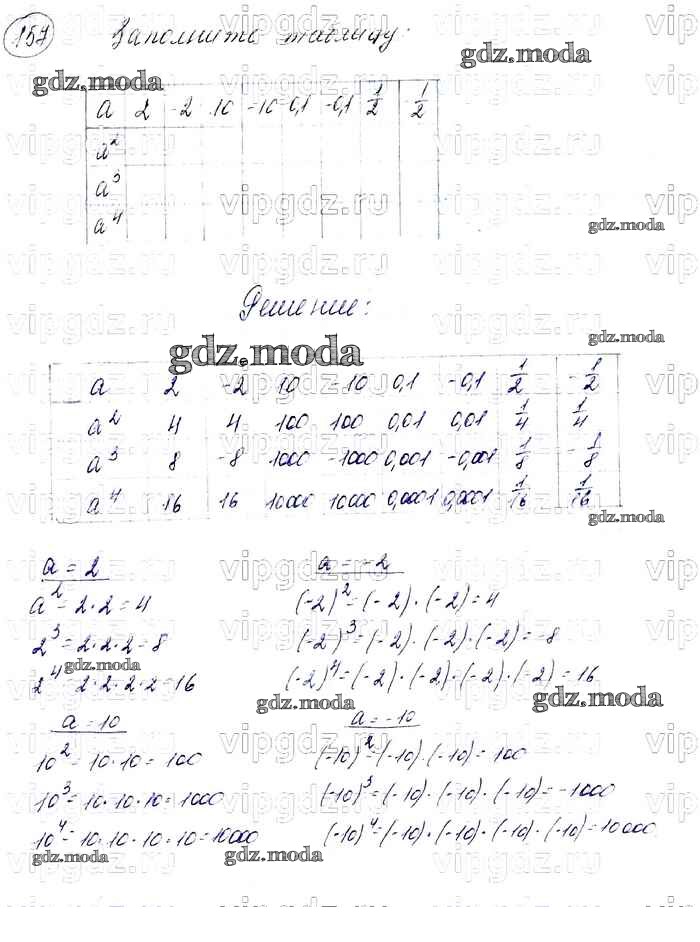 157 Заполните таблицу:
gdz.moda
gdz.moda
a 2 -2 10 -10 0,1 -0,1 1/2 -1/2
a²
a³
a⁴
gdz.moda
Решение:
gdz.moda
gdz.moda
a 2 -2 10 -10 0,1 -0,1 1/2 -1/2
a² 4 4 100 100 0,01 0,01 1/4 1/4
a³ 8 -8 1000 -1000 0,001 -0,001 1/8 -1/8
a⁴ 16 16 10000 10000 0,0001 0,0001 1/16 1/16
gdz.moda
a = 2
a² = 2·2 = 4
2³ = 2·2·2 = 8
gdz.moda
2⁴ = 2·2·2·2 = 16
a = -2
(-2)² = (-2)·(-2) = 4
(-2)³ = (-2)·(-2)·(-2) = -8
(-2)⁴ = (-2)·(-2)·(-2)·(-2) = 16
gdz.moda
gdz.moda
a = 10
10² = 10·10 = 100
10³ = 10·10·10 = 1000
10⁴ = 10·10·10·10 = 10000
gdz.moda
a = -10
(-10)² = (-10)·(-10) = 100
(-10)³ = (-10)·(-10)·(-10) = -1000
(-10)⁴ = (-10)·(-10)·(-10)·(-10) = 10000
gdz.moda
gdz.moda
vipgdz.ru